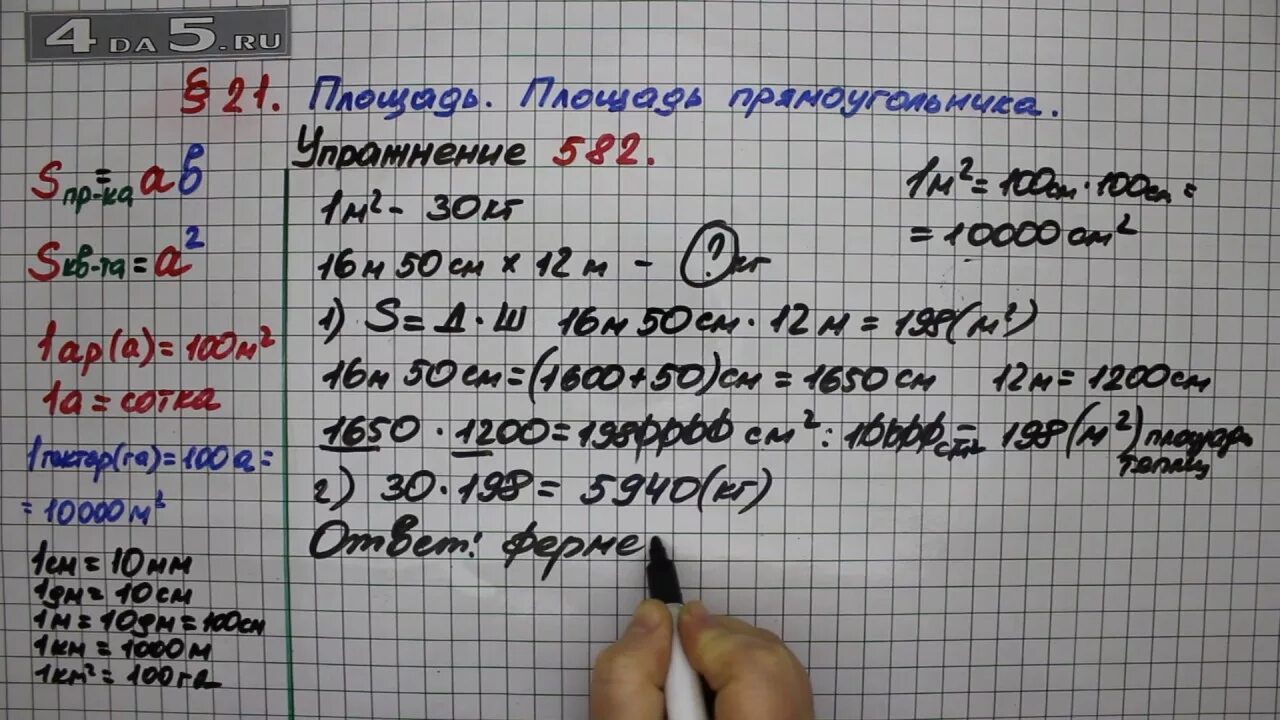 4DA5.RU
§ 21. Площадь. Площадь прямоугольника.
Упражнение 582.
Sпр-ка = ab
Sкв-та = a²
1ар(а) = 100м²
1а = сотка
1гектар(га) = 100а =
= 10000м²
1см = 10мм
1дм = 10см
1м = 10дм = 100см
1км = 1000м
1км² = 100га
1м² - 30кг
16м 50см × 12м - ? кг
1м² = 100см · 100см =
= 10000см²
1) S = Д · Ш 16м 50см · 12м = 198(м²)
16м 50см = (1600 + 50)см = 1650см 12м = 1200см
1650 · 1200 = 1980000 см² : 10000см² = 198(м²) площадь
теплиц
2) 30 · 198 = 5940(кг)
Ответ: ферме